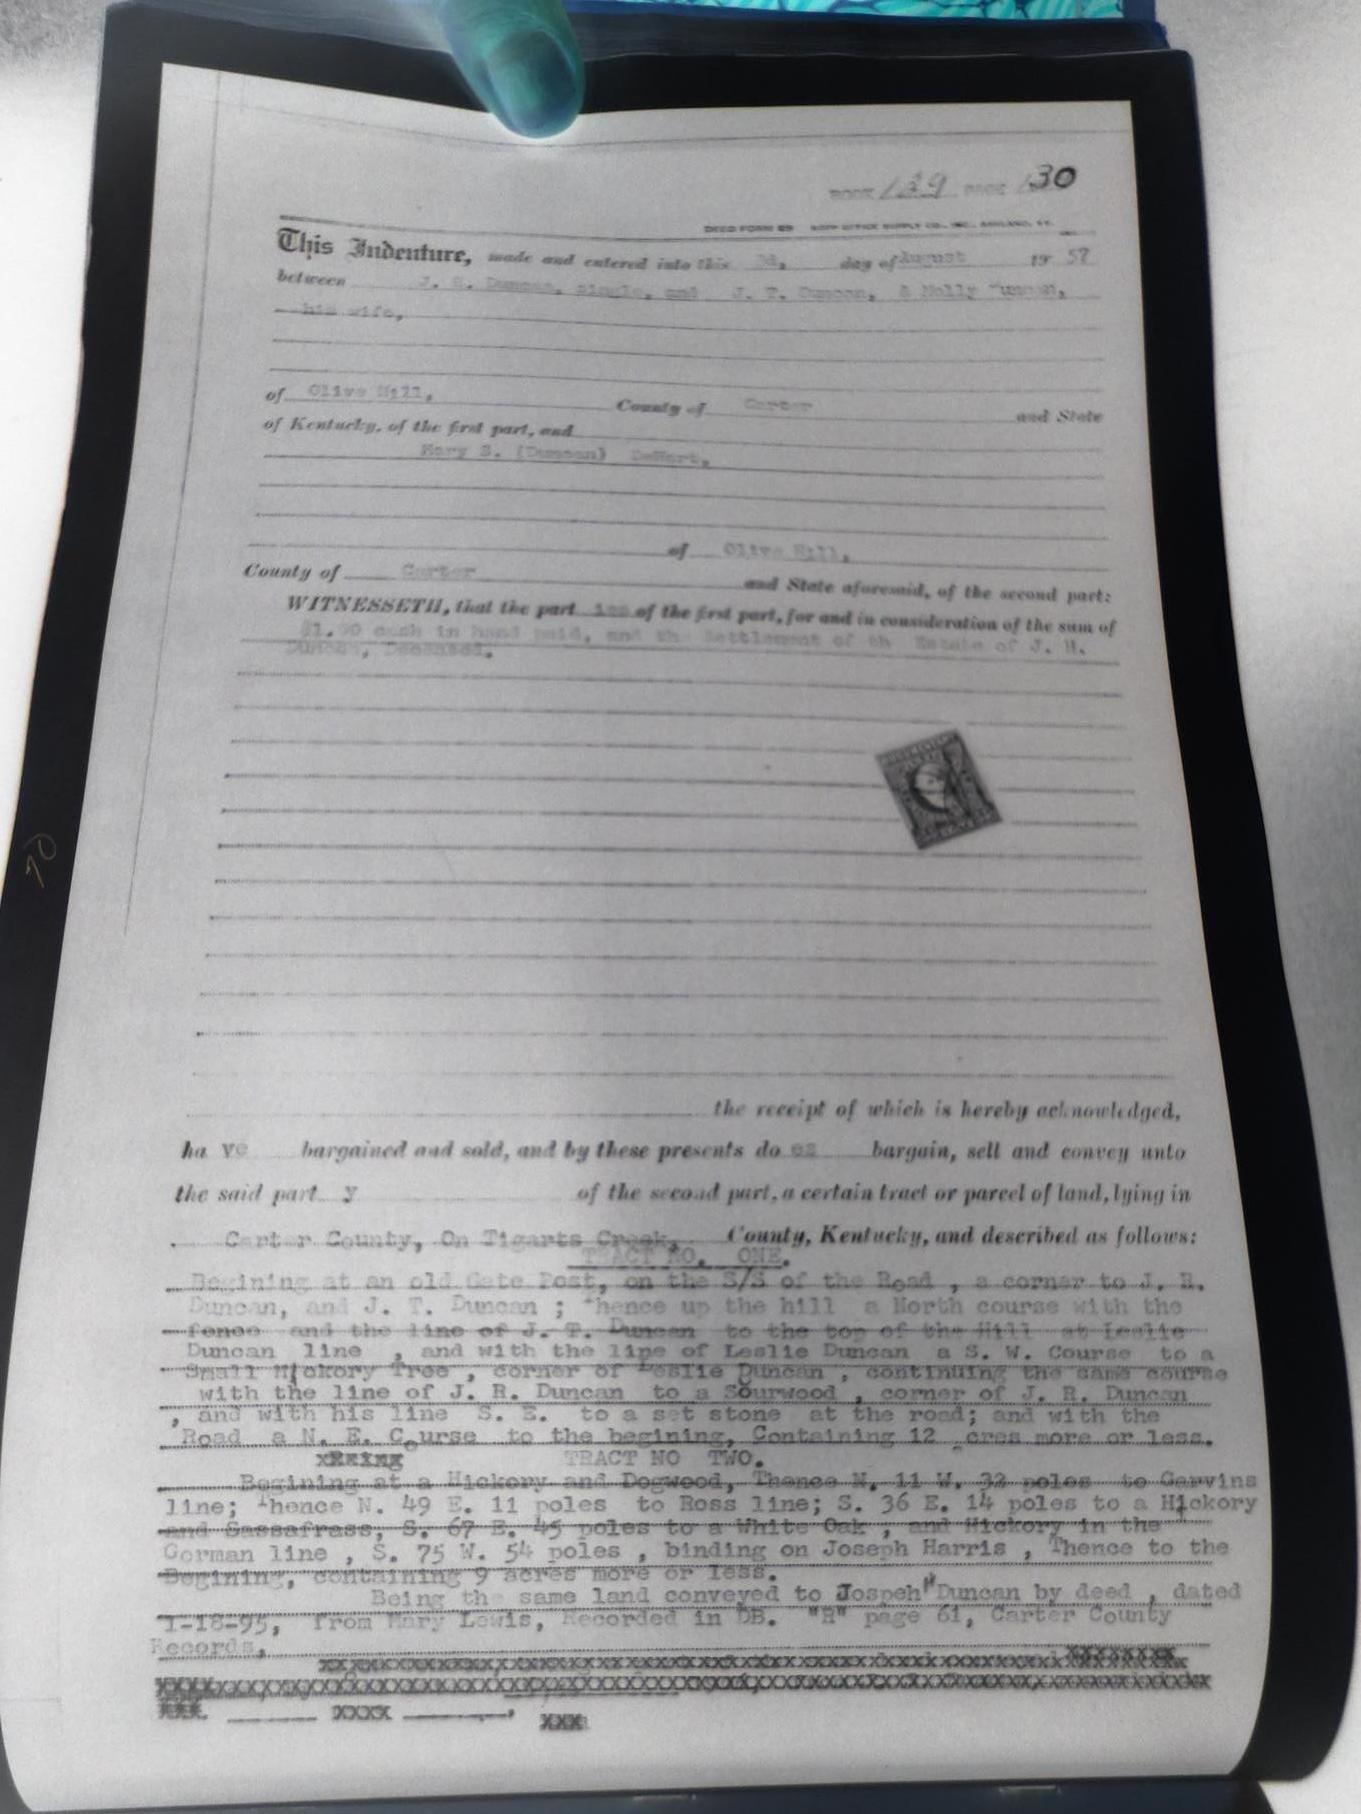 BOOK 139 PAGE 130
DEED FORM 69 KOPP OFFICE SUPPLY CO., INC., ASHLAND, KY.
This Indenture, made and entered into this 3d, day of August 19 57
between J. R. Duncan, single, and J. T. Duncan, & Molly Duncan,
his wife,
of Olive Hill, County of Carter and State
of Kentucky, of the first part, and
Mary S. (Duncan) DeHart,
of Olive Hill,
County of Carter and State aforesaid, of the second part:
WITNESSETH, that the part ies of the first part, for and in consideration of the sum of
$1.00 cash in hand paid, and the Settlement of th Estate of J. H.
Duncan, Deceased.
the receipt of which is hereby acknowledged,
ha ve bargained and sold, and by these presents do es bargain, sell and convey unto
the said part y of the second part, a certain tract or parcel of land, lying in
Carter County, On Tigarts Creek, County, Kentucky, and described as follows:
TRACT NO. ONE.
Begining at an old Gate Post, on the S/S of the Road , a corner to J. R.
Duncan, and J. T. Duncan ; Thence up the hill a North course with the
fence and the line of J. T. Duncan to the top of the Hill at Leslie
Duncan line , and with the line of Leslie Duncan a S. W. Course to a
Small Hickory Tree , corner of Leslie Duncan , continuing the same course
with the line of J. R. Duncan to a Sourwood , corner of J. R. Duncan
, and with his line S. E. to a set stone at the road; and with the
Road a N. E. Course to the begining, Containing 12 acres more or less.
xBeing TRACT NO TWO.
Begining at a Hickory and Dogwood, Thence N. 11 W. 32 poles to Garvins
line; Thence N. 49 E. 11 poles to Ross line; S. 36 E. 14 poles to a Hickory
and Sassafrass, S. 67 E. 45 poles to a White Oak , and Hickory in the
Gorman line , S. 75 W. 54 poles , binding on Joseph Harris , Thence to the
Begining, containing 9 acres more or less.
Being the same land conveyed to Jospeh H Duncan by deed , dated
1-18-95, from Mary Lewis, Recorded in DB. "R" page 61, Carter County
Records,